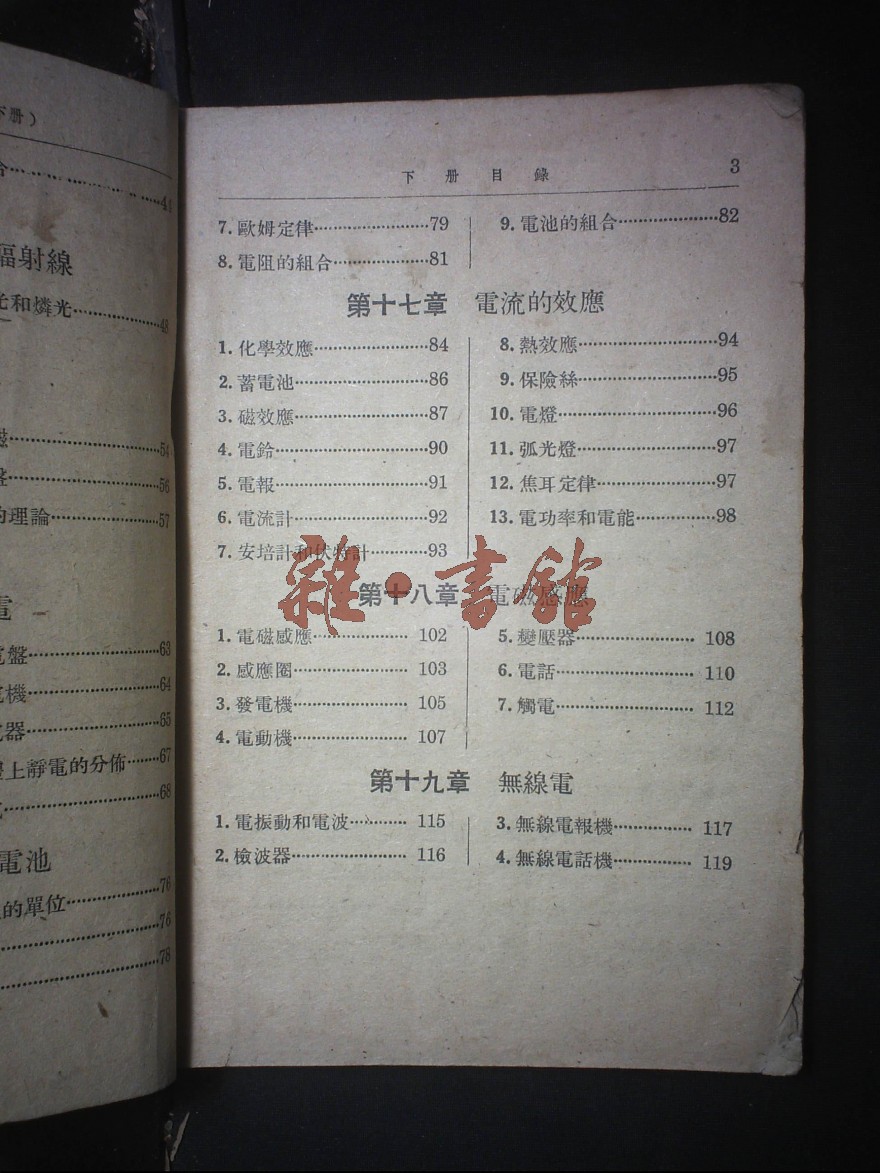 下册）
合 44
輻射線
光和燐光 48
磁 54
盤 56
的理論 57
電
電盤 63
電機 64
電器 65
體上靜電的分佈 67
68
電池
的單位 76
76
78
下册目錄 3
7. 歐姆定律 79
8. 電阻的組合 81
9. 電池的組合 82
第十七章 電流的效應
1. 化學效應 84
2. 蓄電池 86
3. 磁效應 87
4. 電鈴 90
5. 電報 91
6. 電流計 92
7. 安培計和伏特計 93
8. 熱效應 94
9. 保險絲 95
10. 電燈 96
11. 弧光燈 97
12. 焦耳定律 97
13. 電功率和電能 98
雜·書館
第十八章 電磁感應
1. 電磁感應 102
2. 感應圈 103
3. 發電機 105
4. 電動機 107
5. 變壓器 108
6. 電話 110
7. 觸電 112
第十九章 無線電
1. 電振動和電波 115
2. 檢波器 116
3. 無線電報機 117
4. 無線電話機 119